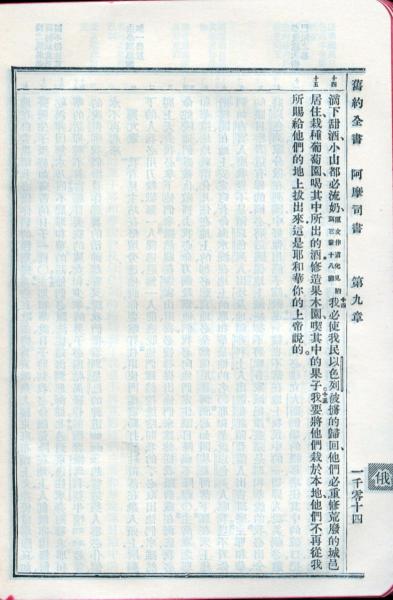 俄
舊約全書 阿摩司書 第九章 一千零十四
十四
滴下甜酒、小山都必流奶、原文作消化見約珥三章十八節十四我必使我民以色列被擄的歸回、他們必重修荒廢的城邑
十五
居住、栽種葡萄園、喝其中所出的酒、修造果木園、喫其中的果子。十五我要將他們栽於本地、他們不再從我
所賜給他們的地上拔出來、這是耶和華你的上帝說的。